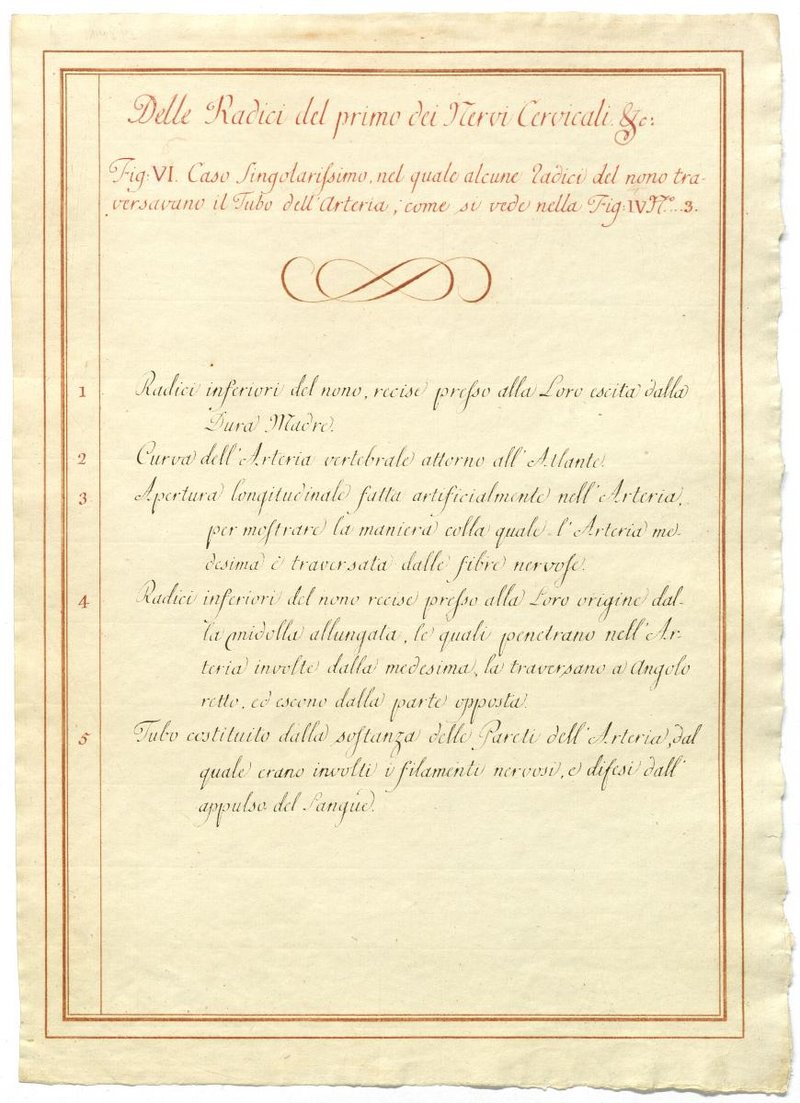 Delle Radici del primo dei Nervi Cervicali. &c:
Fig: VI. Caso Singolarissimo, nel quale alcune radici del nono tra-
versavano il Tubo dell'Arteria, come si vede nella Fig: IV N.° 3.
1 Radici inferiori del nono, recise presso alla Loro escita dalla
Dura Madre.
2 Curva dell'Arteria vertebrale attorno all'Atlante.
3 Apertura longitudinale fatta artificialmente nell'Arteria,
per mostrare la maniera colla quale l'Arteria me-
desima è traversata dalle fibre nervose.
4 Radici inferiori del nono recise presso alla Loro origine dal-
la midolla allungata, le quali penetrano nell'Ar-
teria involte dalla medesima, la traversano a Angolo
retto, ed escono dalla parte opposta.
5 Tubo costituito dalla sostanza delle Pareti dell'Arteria, dal
quale erano involti i filamenti nervosi, e difesi dall'
appulso del Sangue.